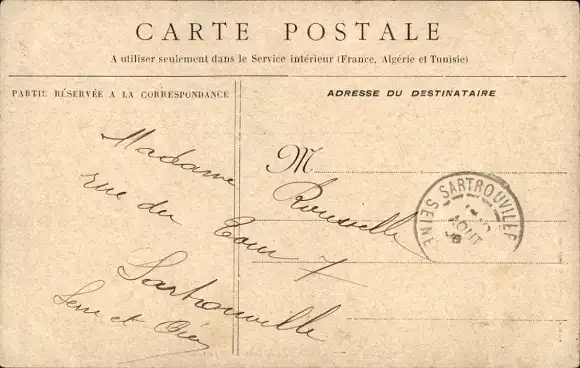 CARTE POSTALE
A utiliser seulement dans le Service intérieur (France, Algérie et Tunisie)
PARTIE RÉSERVÉE A LA CORRESPONDANCE
ADRESSE DU DESTINATAIRE
M
Madame Rousselle
rue du Tour 7
Sartrouville
Seine et Oise
SARTROUVILLE
AOUT
SEINE